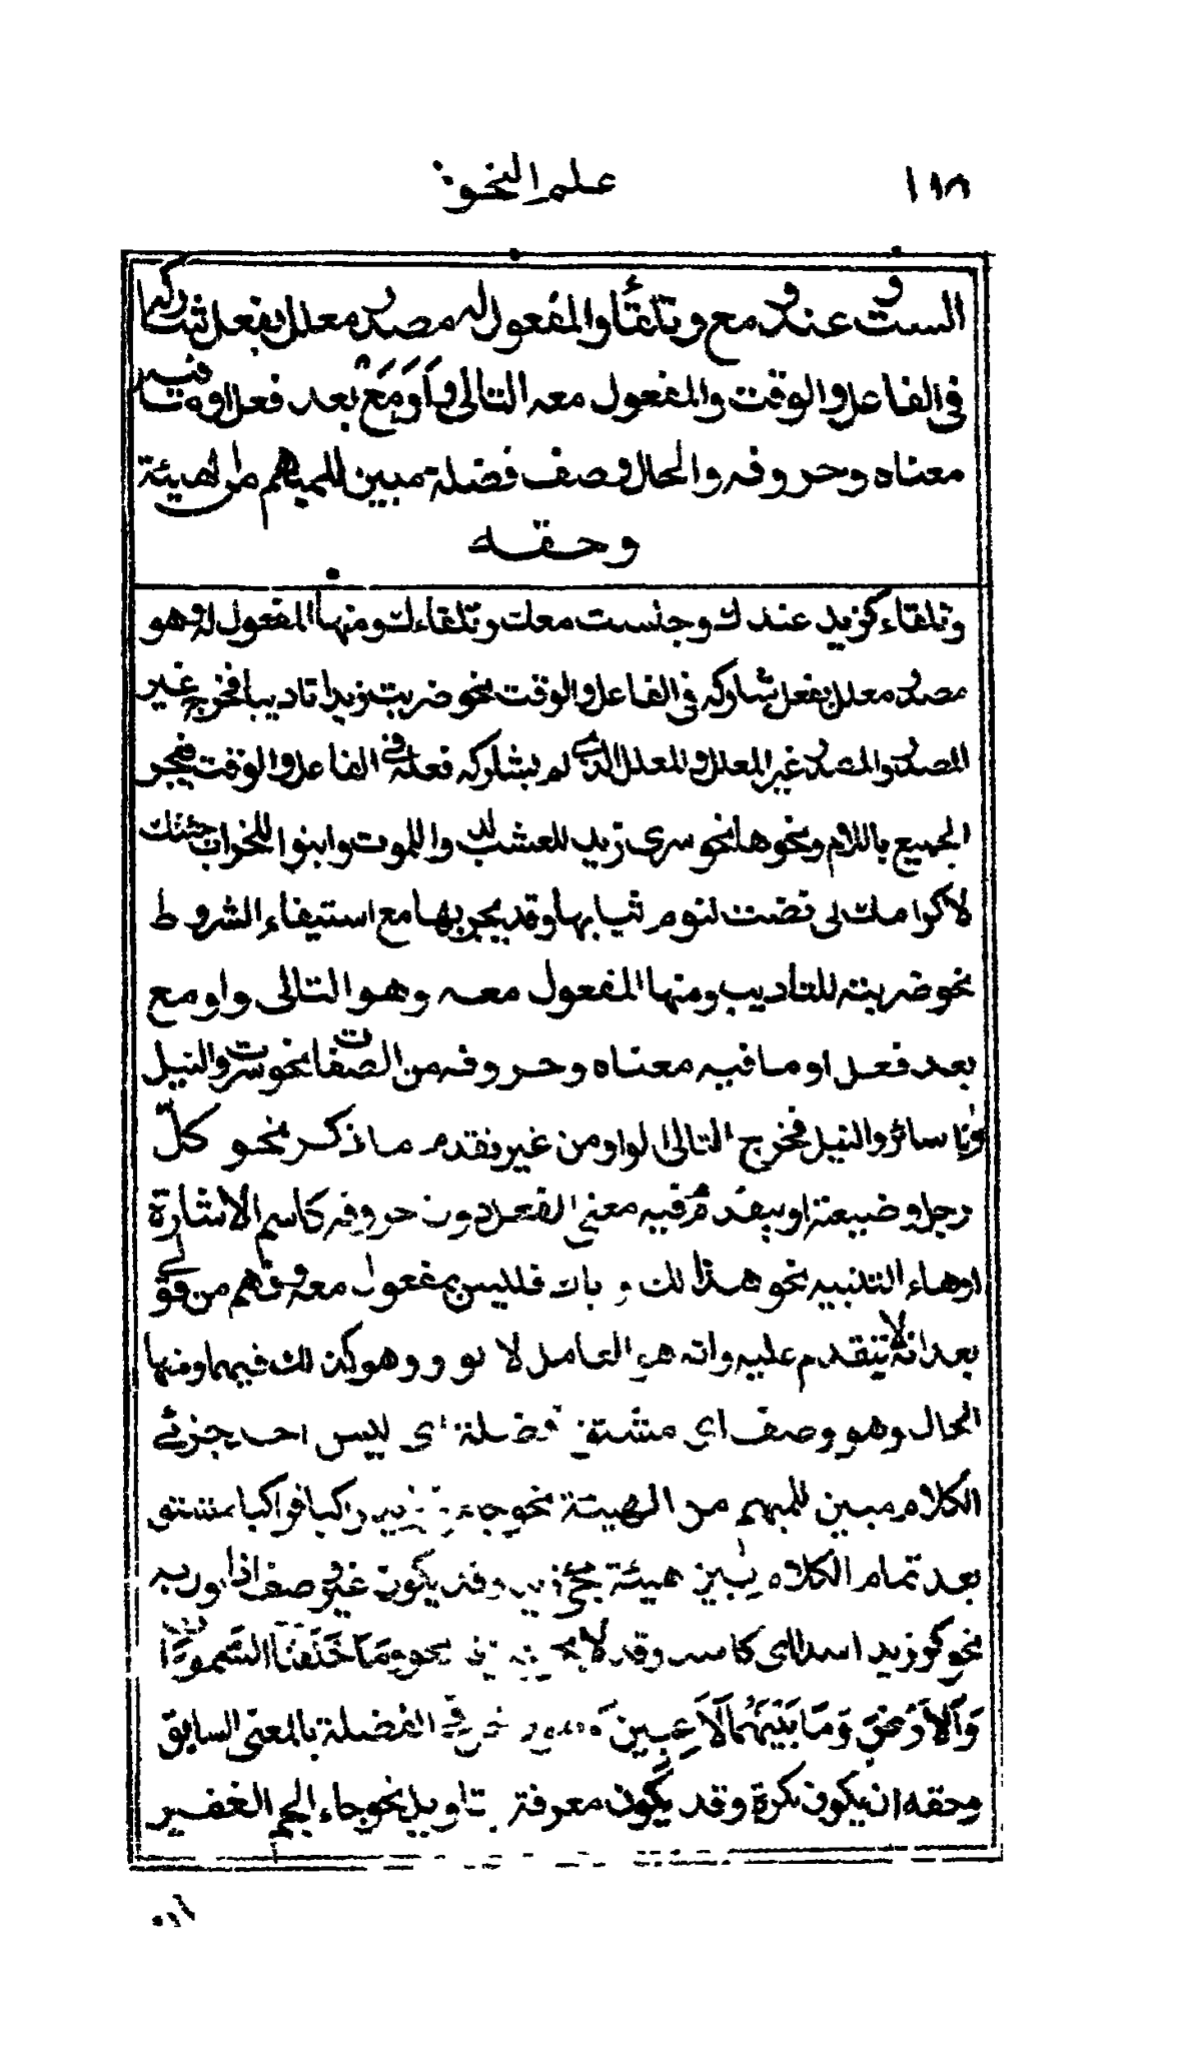 ١١٨ علم النحو
الست وعند ومع وتلقاء والمفعول له مصدر معلل بفعل شاركه
في الفاعل والوقت والمفعول معه التالي واو مع بعد فعل او ما فيه
معناه وحروفه والحال وصف فضلة مبين للمبهم من الهيئة
وحقه
وتلقاء كزيد عندك وجلست معك وتلقاءك ومنها المفعول له وهو
مصدر معلل بفعل شاركه في الفاعل والوقت نحو ضربت زيدا تاديبا فخرج غير
المصدر والمصدر غير المعلل والمعلل الذي لم يشاركه فعله في الفاعل والوقت فيجر
الجميع باللام ونحوها نحو سرى زيد للعشب لدوا للموت وابنوا للخراب جئتك
لاكرامك لي نضت لنوم ثيابها وقد يجر بها مع استيفاء الشروط
نحو ضربته للتاديب ومنها المفعول معه وهو التالي واو مع
بعد فعل او ما فيه معناه وحروفه من الصفات نحو سرت والنيل
وانا سائر والنيل فخرج التالي الواو من غير تقدم ما ذكر نحو كلّ
رجل وضيعته او يتقدم فيه معنى الفعل دون حروفه كاسم الاشارة
او هاء التنبيه نحو هذا لك و اباك فليس بمفعول معه وفهم من قولي
بعد انه لا يتقدم عليه وانه هو العامل لا لواو وهو كذلك فيهما ومنها
الحال وهو وصف اي مشتق فضلة اي ليس احد جزئي
الكلام مبين للمبهم من الهيئة نحو جاء زيد راكبا فراكبا مشتق
بعد تمام الكلام يبين هيئة مجئ زيد وقد يكون غير وصف اذا اول به
نحو كر زيد اسدا اي كاسد وقد لا نحو وَمَا خَلَقْنَا السَّمٰوَاتِ
وَالْاَرْضَ وَمَا بَيْنَهُمَا لَاعِبِينَ في الفضلة بالمعنى السابق
وحقه ان يكون نكرة وقد يكون معرفة بتاويل نحو جاء الجم الغفير